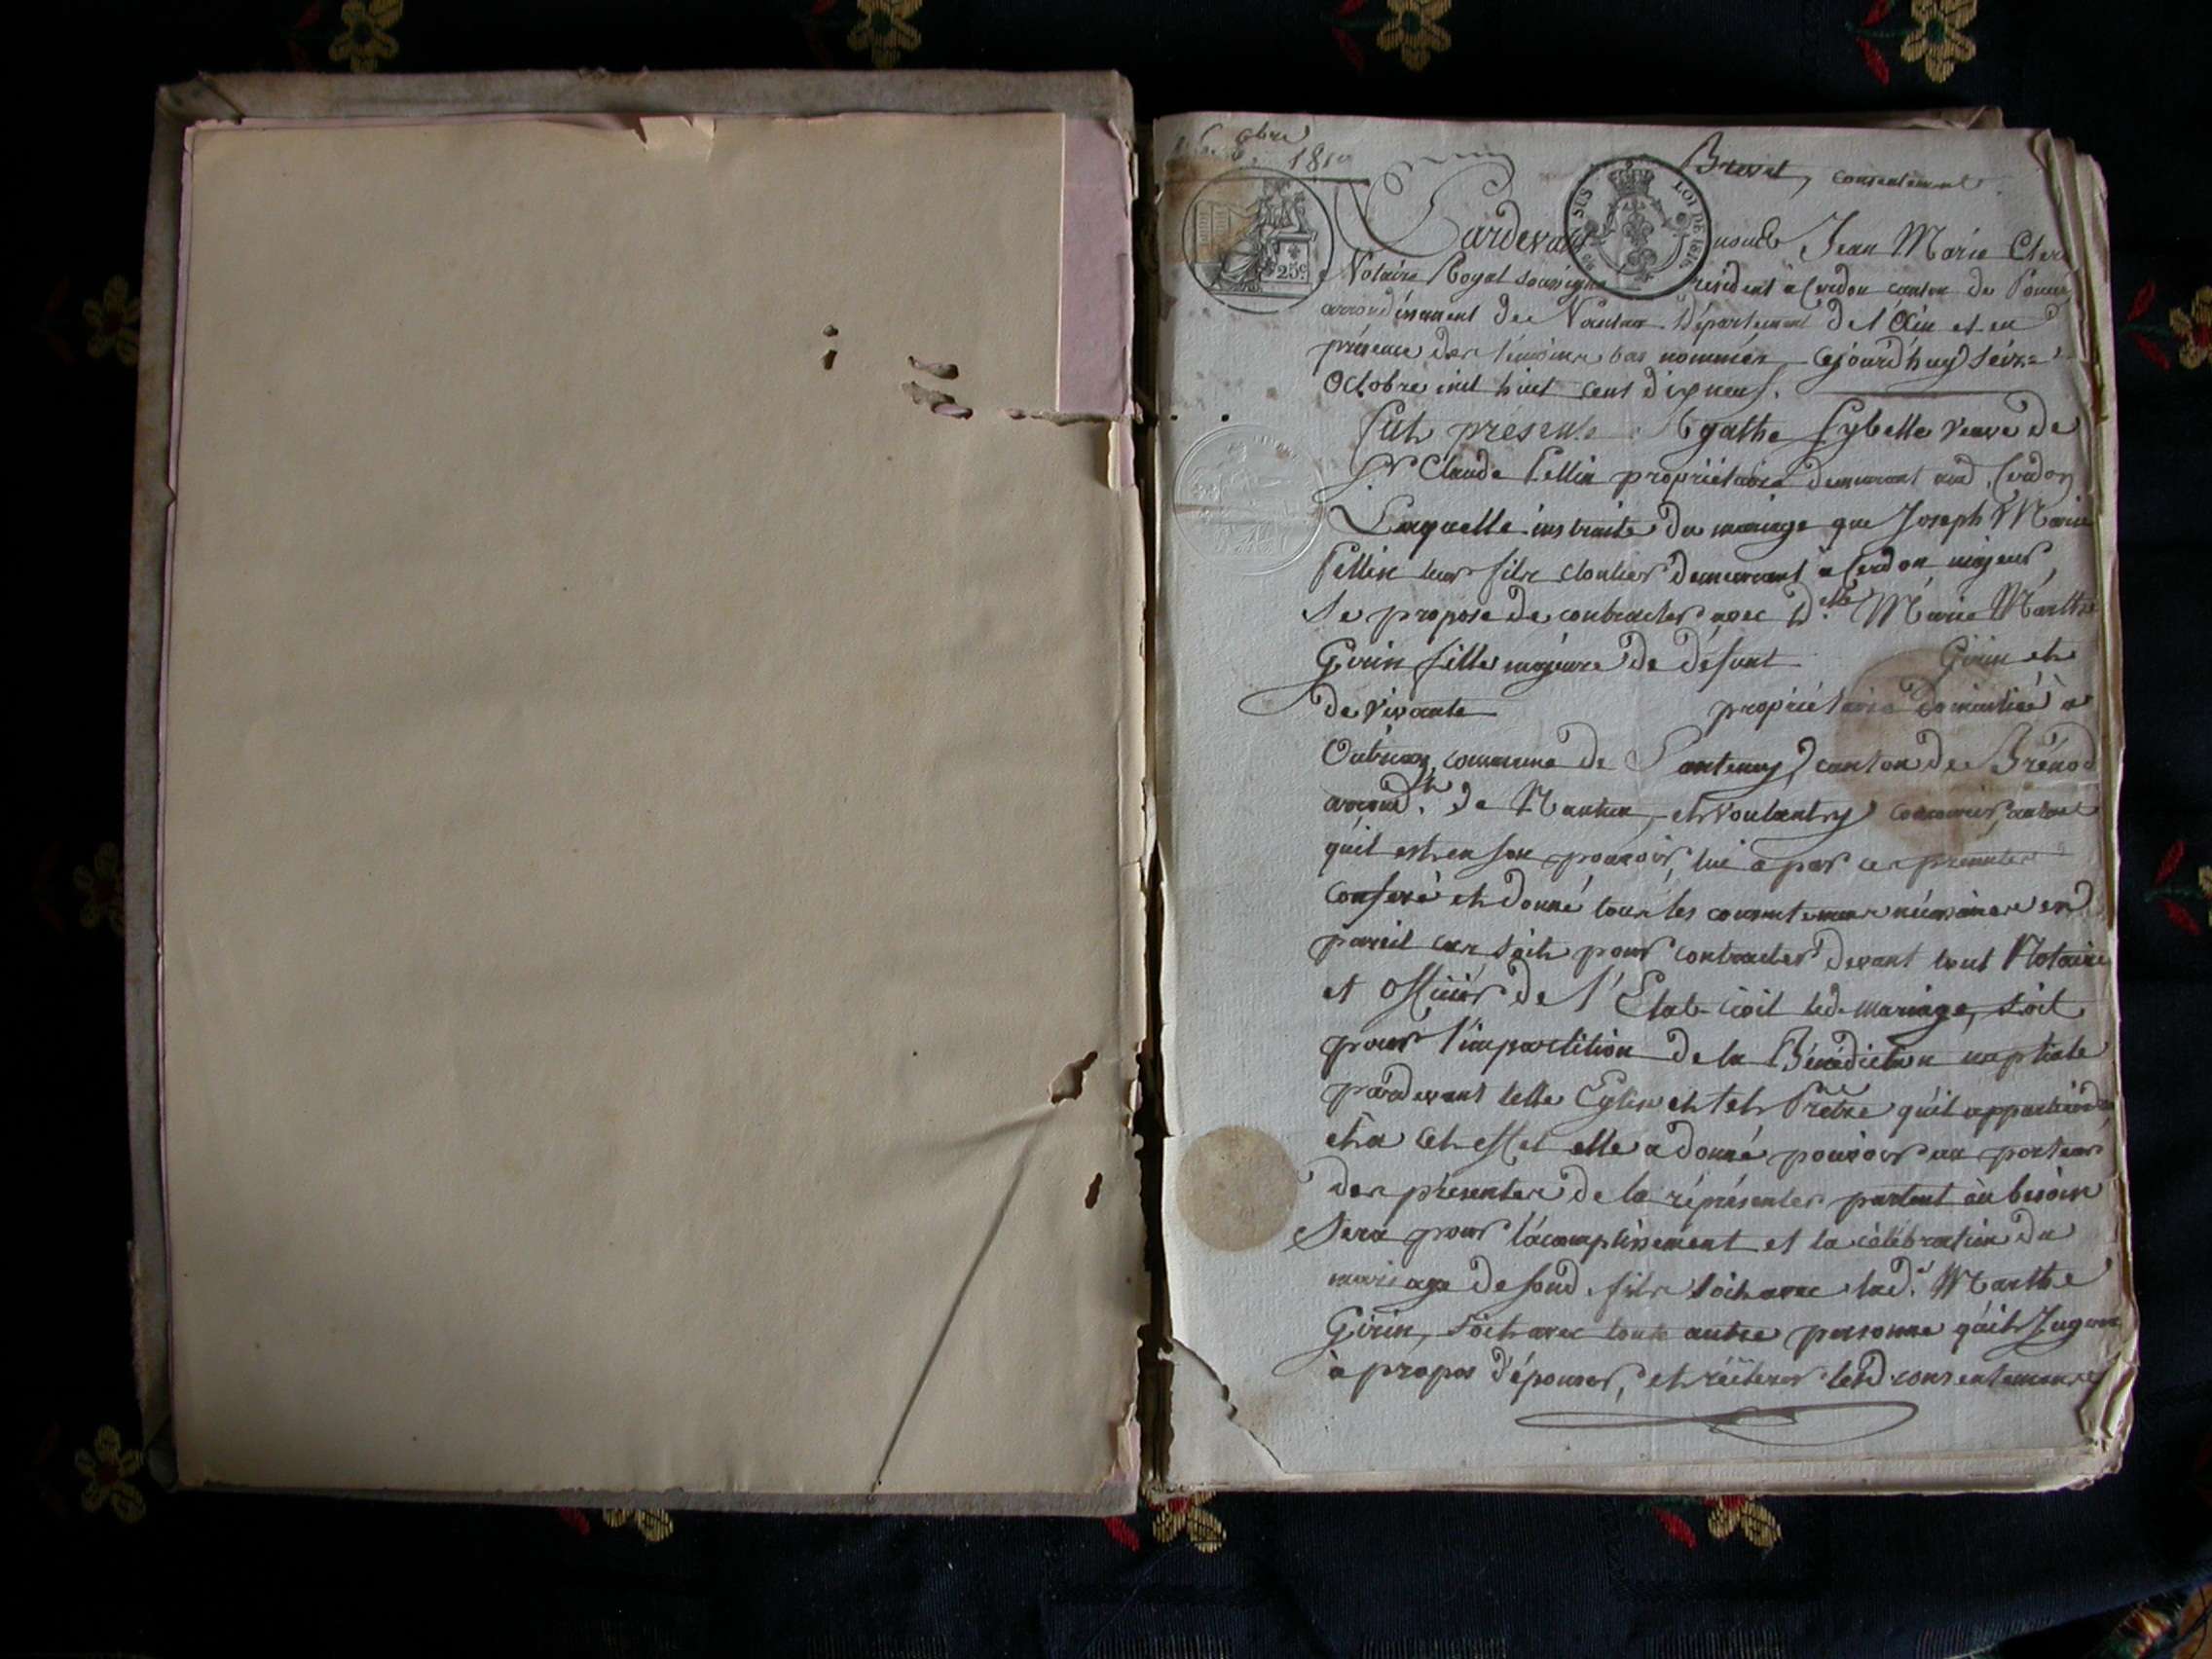 8bre 1819
Brevet, consentement.
25c.
SUS
LOI DE 1816
Pardevant nous Jean Marie
Notaire Royal soussigné résident à Cerdon canton de
arrondissement de Nantua Département de l'Ain et en
présence des témoins bas nommés, cejourd'huy seize
Octobre mil huit cent dix neuf.
fut présente Agathe Sybelle veuve de
Sr Claude Pellin propriétaire demeurant aud. Cerdon
Laquelle instruite du mariage que Joseph Marie
Pellin leur fils cloutier demeurant à Cerdon majeur,
se propose de contracter avec Dlle Marie Marthe
Girin fille majeure de défunt Girin et
de vivante propriétaire domiciliée à
commune de canton de Brénod
arrond.t de Nantua, et voulant y concourir autant
qu'il est en son pouvoir, lui a par ces présentes
conféré et donné tous les consentemens nécessaires en
pareil cas soit pour contracter devant tout Notaire
et officier de l'Etat-civil led. mariage, soit
pour l'impartition de la Bénédiction nuptiale
pardevant telle Eglise et tel Prêtre qu'il appartiendra
et à cet effet elle a donné pouvoir au porteur
des présentes de la réprésenter partout où besoin
sera pour l'acomplissement et la célébration du
mariage de sond. fils soit avec lad. Marthe
Girin, soit avec toute autre personne qu'il jugera
à propos d'épouser, et réitérer led consentement